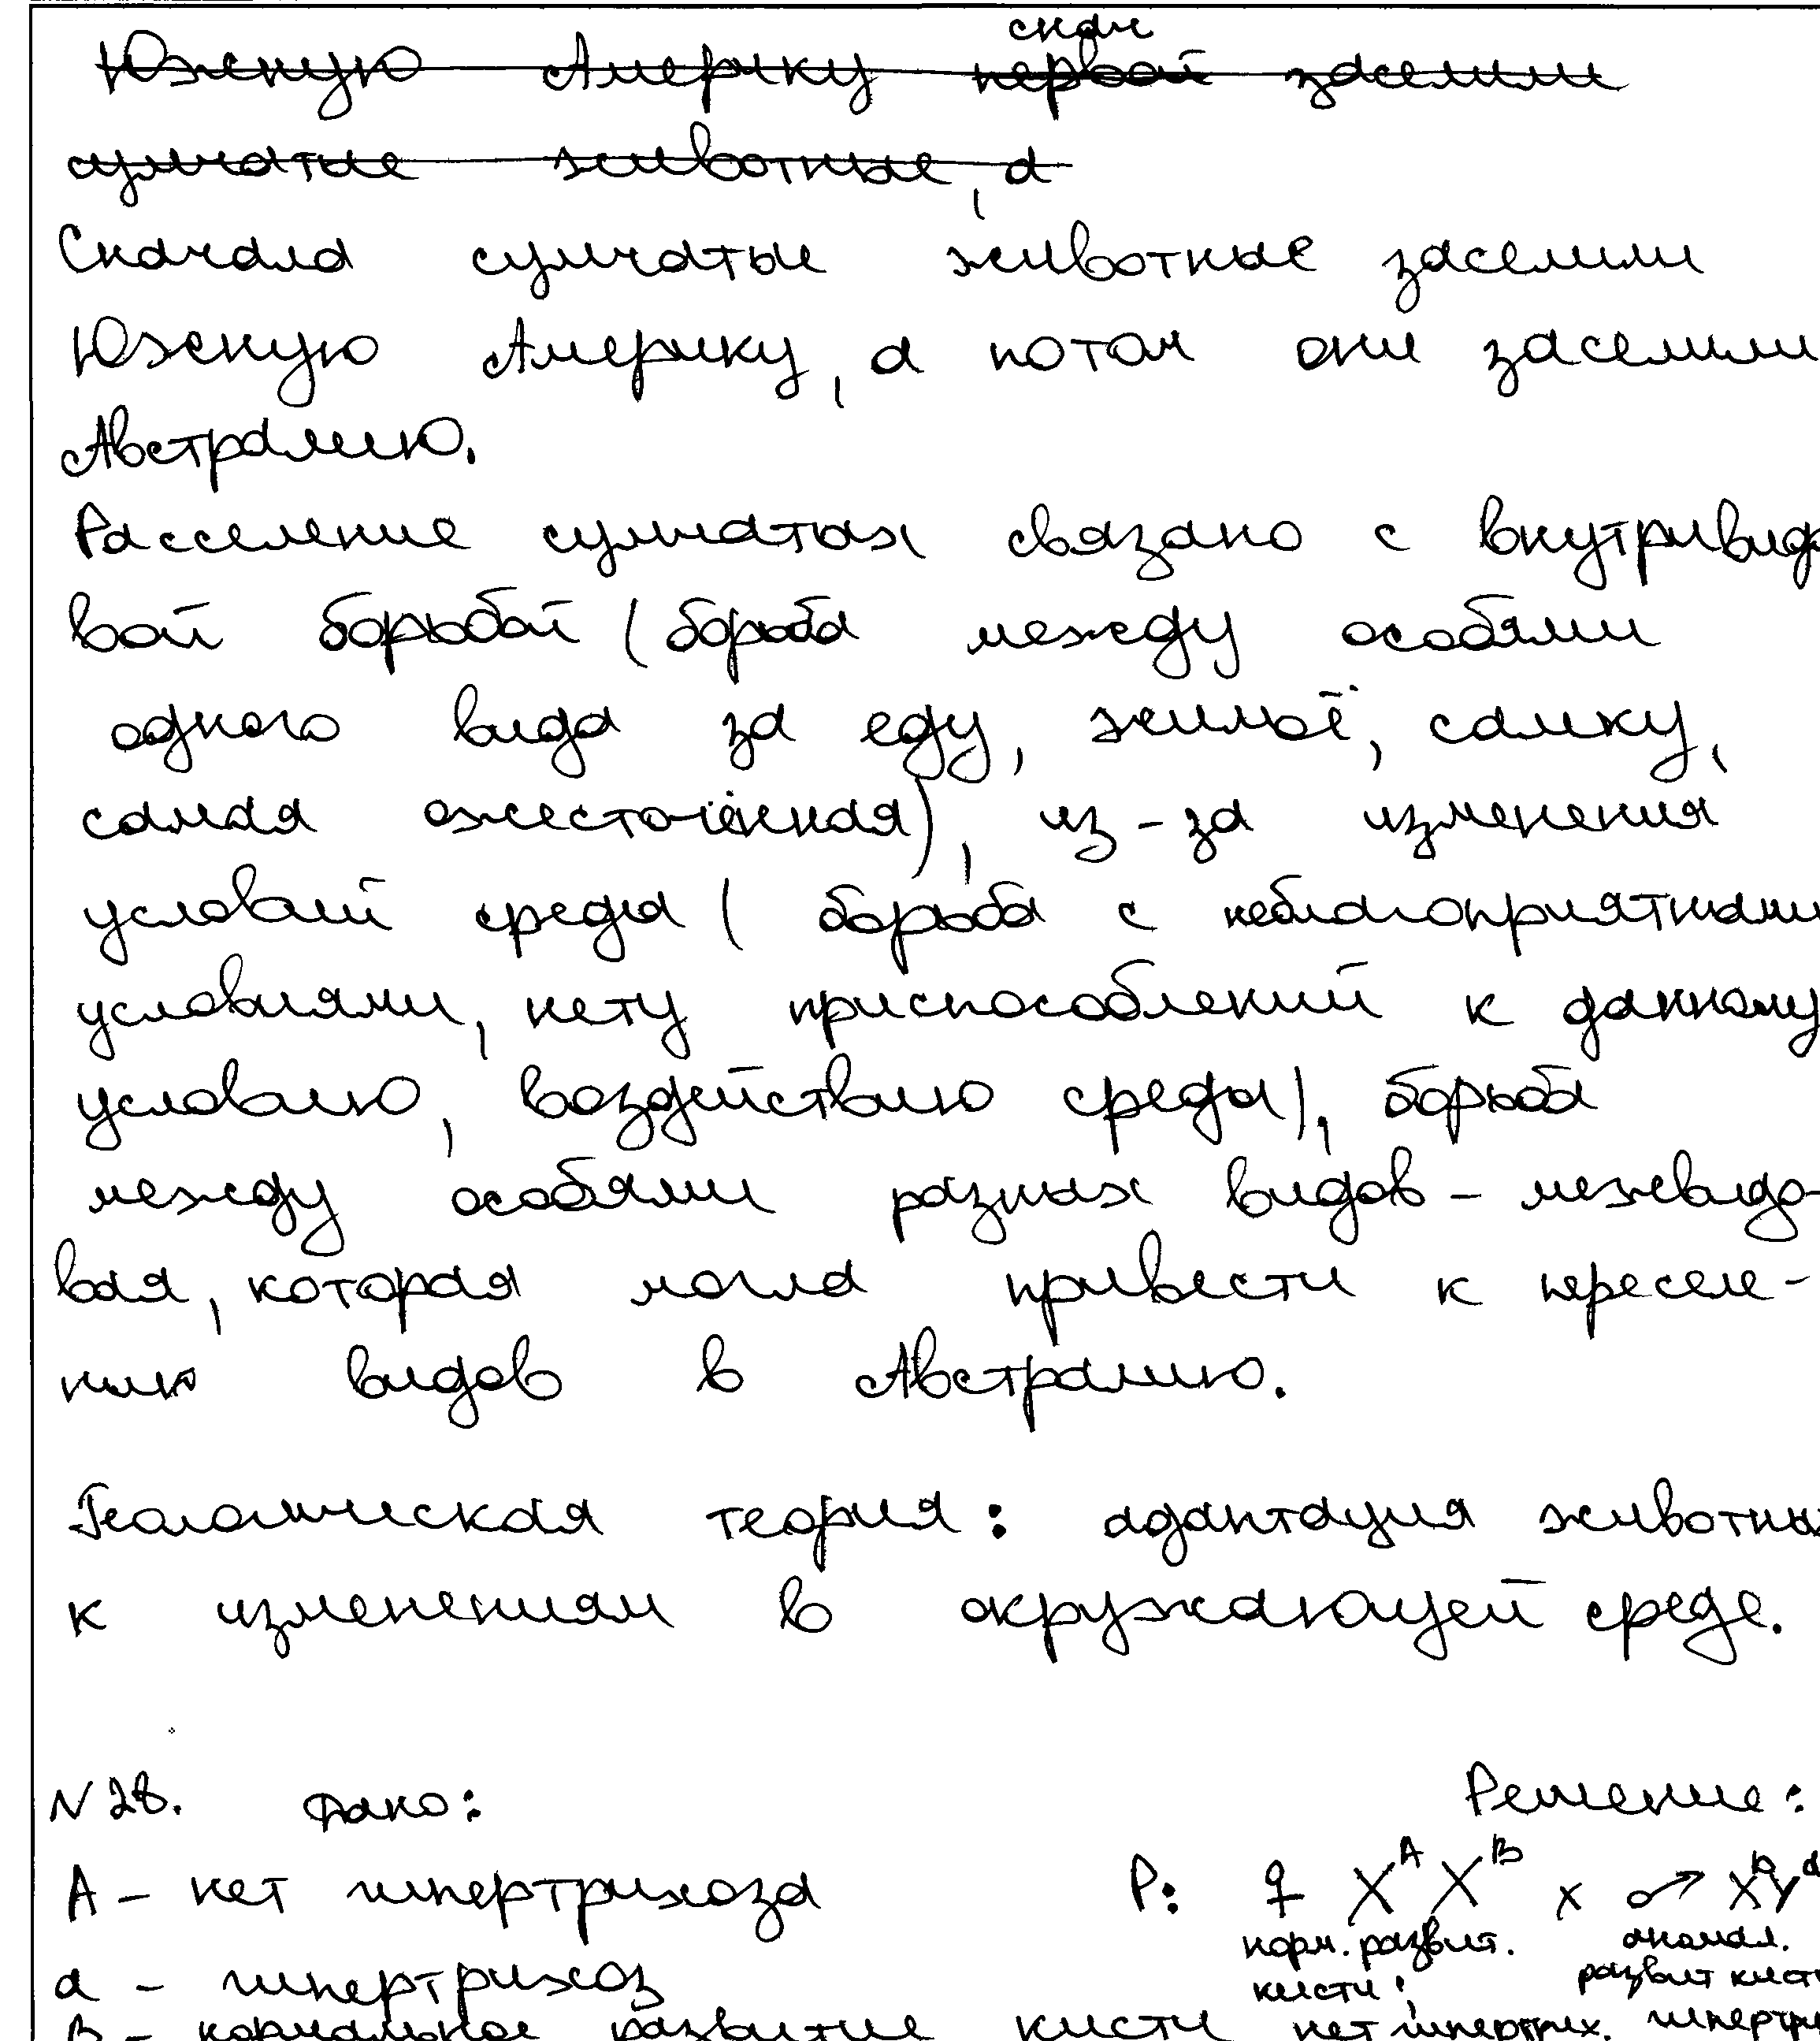 скач
Южную Америку первой заселили
сумчатые животные, а
Сначала сумчатые животные заселили
Южную Америку, а потом они заселили
Австралию.
Расселение сумчатых связано с внутривидо
вой борьбой (борьба между особями
одного вида за еду, жильё, самку,
самая ожесточённая), из-за изменения
условий среды (борьба с неблагоприятными
условиями, нету приспособлений к данному
условию, воздействию среды), борьба
между особями разных видов - межвидо-
вая, которая могла привести к переселе-
нию видов в Австралию.
Геологическая теория: адаптация животных
к изменениям в окружающей среде.
N 28. Дано: Решение:
A - нет гипертрихоза P: ♀ X^A X^B x ♂ X^b Y^a
норм. развит. аномал.
a - гипертрихоз кисти; развит кисти
B - нормальное развитие кисти нет гипертрих. гипертри